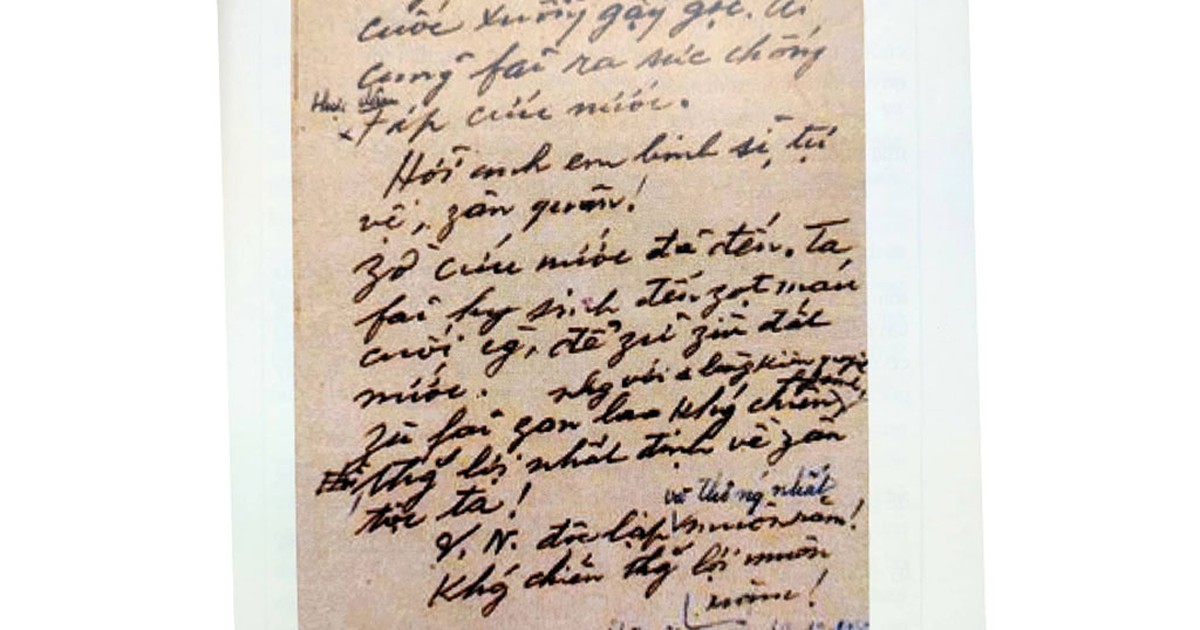 cuốc xuổng gậy gọc. Ai
cung fải ra sức chống
thực dân
Fáp cứu nước.
Hỡi anh em binh sĩ, tự
vệ, zân quân!
Zờ cứu nước đã đến. Ta
fải hy sinh đến zọt máu
cuối cg̀, để zữ zìn đất
nước.
nhg với 1 lòng kiên quyết
Zù fải gan lao khǵ chiến
Thì thğ́ lợi nhất định về zân
tộc ta!
và thống nhất
V. N. độc lập muôn năm!
Khǵ chiến thğ́ lợi muôn
năm!